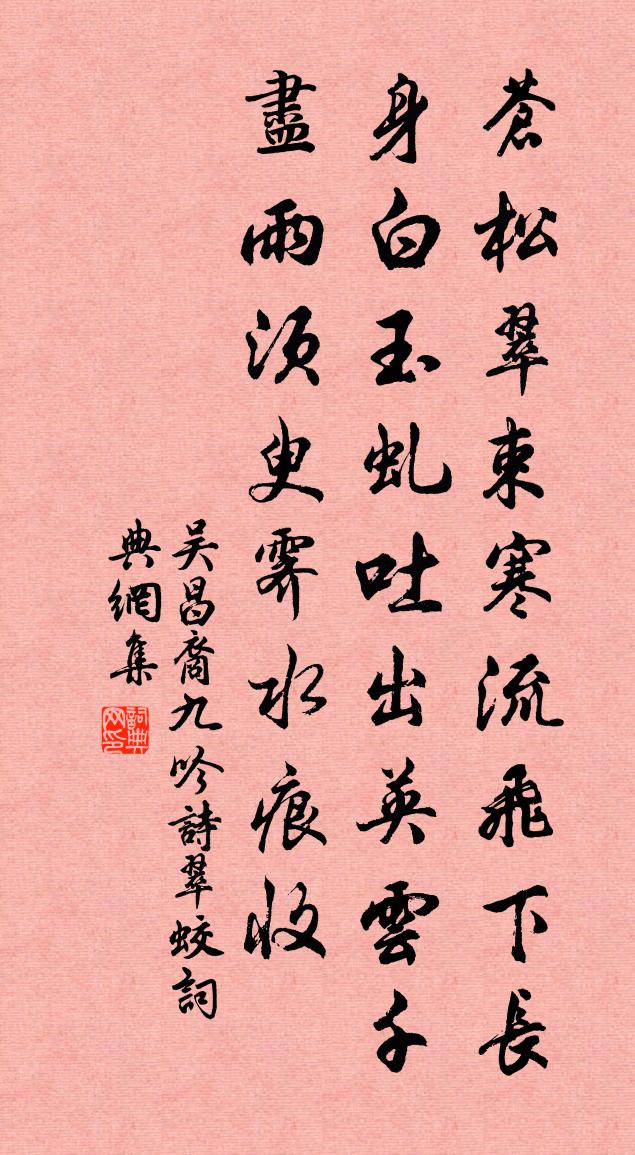 蒼松翠束寒流飛下長
身白玉虬吐出英雲千
盡雨須臾霽水痕收
吳昌裔九吟詩翠蛟詞
典網集
詞典網印